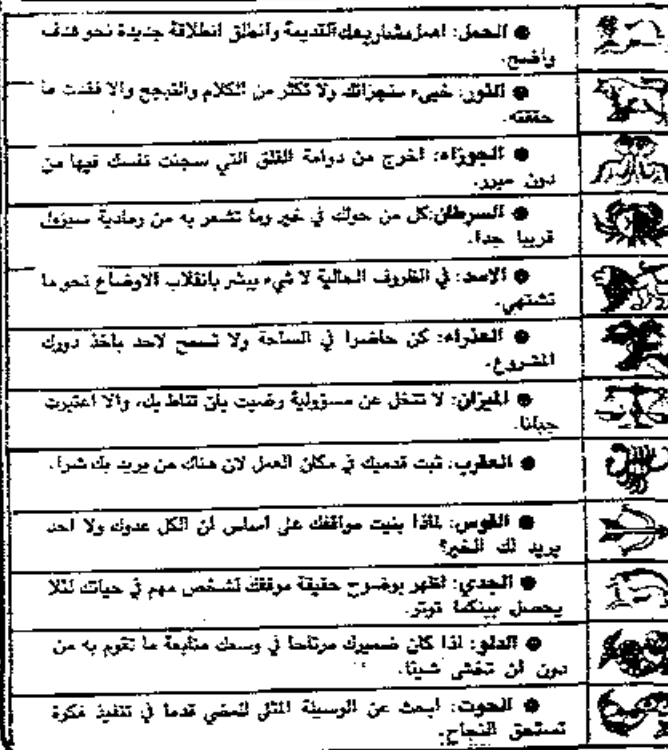 ● الحمل: اهمل مشاريعك القديمة وانطلق انطلاقة جديدة نحو هدف
واضح.
● الثور: خبىء منجزاتك ولا تكثر من الكلام والتبجح والا فقدت ما
حققته.
● الجوزاء: اخرج من دوامة القلق التي سجنت نفسك فيها من
دون مبرر.
● السرطان: كل من حولك في خير وما تشعر به من رمادية سيزول
قريبا جدا.
● الاسد: في الظروف الحالية لا شيء يبشر بانقلاب الاوضاع نحو ما
تشتهي.
● العذراء: كن حاضرا في الساحة ولا تسمح لاحد باخذ دورك
المشروع.
● الميزان: لا تتخل عن مسؤولية رضيت بأن تناط بك، والا اعتبرت
جبانا.
● العقرب: ثبت قدميك في مكان العمل لان هناك من يريد بك شرا.
● القوس: لماذا بنيت مواقفك على اساس ان الكل عدوك ولا احد
يريد لك الخير؟
● الجدي: اظهر بوضوح حقيقة موقفك لشخص مهم في حياتك لئلا
يحصل بينكما توتر.
● الدلو: اذا كان ضميرك مرتاحا في وسعك متابعة ما تقوم به من
دون ان تخشى شيئا.
● الحوت: ابحث عن الوسيلة المثلى للمضي قدما في تنفيذ فكرة
تستحق النجاح.